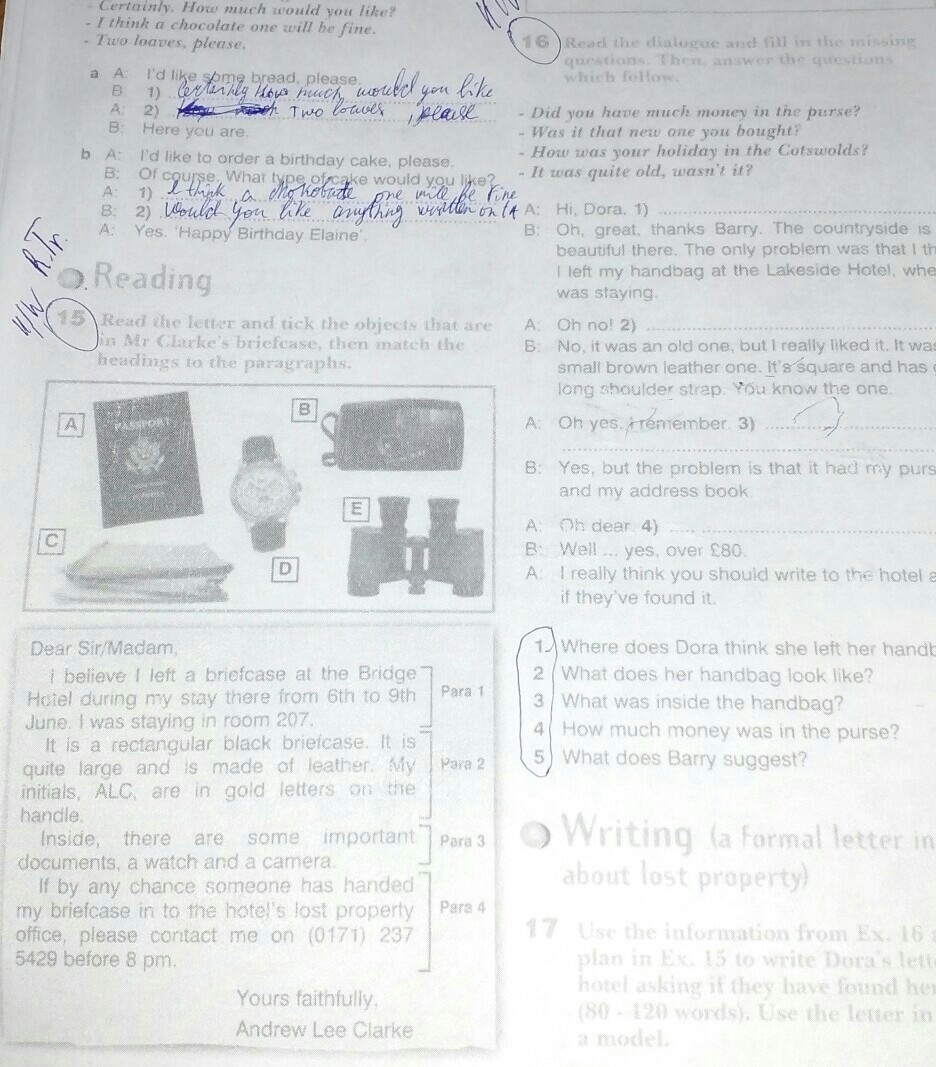 - Certainly. How much would you like?
- I think a chocolate one will be fine.
- Two loaves, please.
a A: I'd like some bread, please.
B 1) Certainly how much would you like
A: 2) Two loaves , please
B: Here you are.
b A: I'd like to order a birthday cake, please.
B: Of course. What type of cake would you like?
A: 1) I think a one will be fine
B: 2) Would you like anything written on it
A: Yes. 'Happy Birthday Elaine'.
H/W R.Tr.
Reading
15 Read the letter and tick the objects that are
in Mr Clarke's briefcase, then match the
headings to the paragraphs.
A
PASSPORT
B
C
D
E
Dear Sir/Madam,
I believe I left a briefcase at the Bridge
Hotel during my stay there from 6th to 9th
June. I was staying in room 207.
Para 1
It is a rectangular black briefcase. It is
quite large and is made of leather. My
initials, ALC, are in gold letters on the
handle.
Para 2
Inside, there are some important
documents, a watch and a camera.
Para 3
If by any chance someone has handed
my briefcase in to the hotel's lost property
office, please contact me on (0171) 237
5429 before 8 pm.
Para 4
Yours faithfully,
Andrew Lee Clarke
16 Read the dialogue and fill in the missing
questions. Then, answer the questions
which follow.
- Did you have much money in the purse?
- Was it that new one you bought?
- How was your holiday in the Cotswolds?
- It was quite old, wasn't it?
A: Hi, Dora. 1)
B: Oh, great, thanks Barry. The countryside is
beautiful there. The only problem was that I th
I left my handbag at the Lakeside Hotel, whe
was staying.
A: Oh no! 2)
B: No, it was an old one, but I really liked it. It was
small brown leather one. It's square and has
long shoulder strap. You know the one.
A: Oh yes, I remember. 3)
B: Yes, but the problem is that it had my purs
and my address book.
A: Oh dear. 4)
B: Well ... yes, over £80.
A: I really think you should write to the hotel a
if they've found it.
1 Where does Dora think she left her handb
2 What does her handbag look like?
3 What was inside the handbag?
4 How much money was in the purse?
5 What does Barry suggest?
Writing (a formal letter in
about lost property)
17 Use the information from Ex. 16 a
plan in Ex. 15 to write Dora's lett
hotel asking if they have found he
(80 - 120 words). Use the letter in
a model.